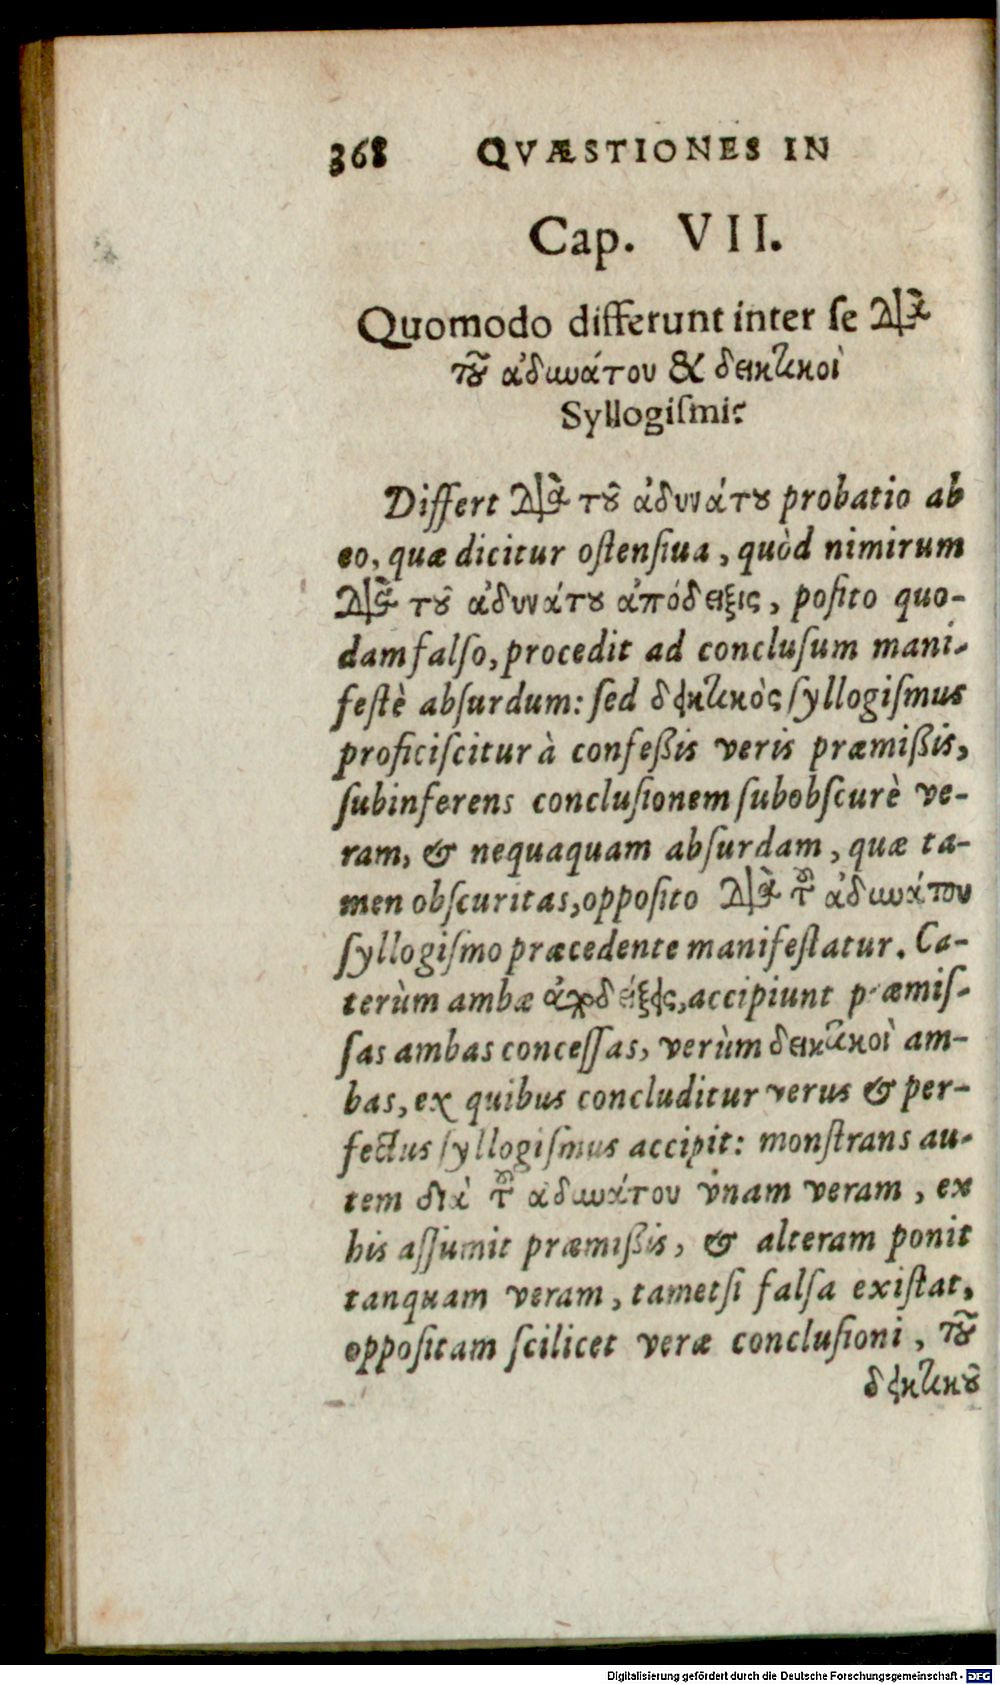 368 QVÆSTIONES IN
Cap. VII.
Quomodo differunt inter se διὰ
τοῦ ἀδυνάτου & δεικτικοὶ
Syllogismi?
Differt διὰ τοῦ ἀδυνάτου probatio ab
eo, quæ dicitur ostensiua, quòd nimirum
διὰ τοῦ ἀδυνάτου ἀπόδειξις, posito quo-
dam falso, procedit ad conclusum mani-
festè absurdum: sed δεικτικὸς syllogismus
proficiscitur à confeßis veris præmißis,
subinferens conclusionem subobscurè ve-
ram, & nequaquam absurdam, quæ ta-
men obscuritas, opposito διὰ τοῦ ἀδυνάτου
syllogismo præcedente manifestatur. Cæ-
terùm ambæ ἀποδείξεις, accipiunt præmis-
sas ambas concessas, verùm δεικτικοὶ am-
bas, ex quibus concluditur verus & per-
fectus syllogismus accipit: monstrans au-
tem διὰ τοῦ ἀδυνάτου vnam veram, ex
his assumit præmißis, & alteram ponit
tanquam veram, tametsi falsa existat,
oppositam scilicet veræ conclusioni, τοῦ
δεικτικοῦ
Digitalisierung gefördert durch die Deutsche Forschungsgemeinschaft - DFG